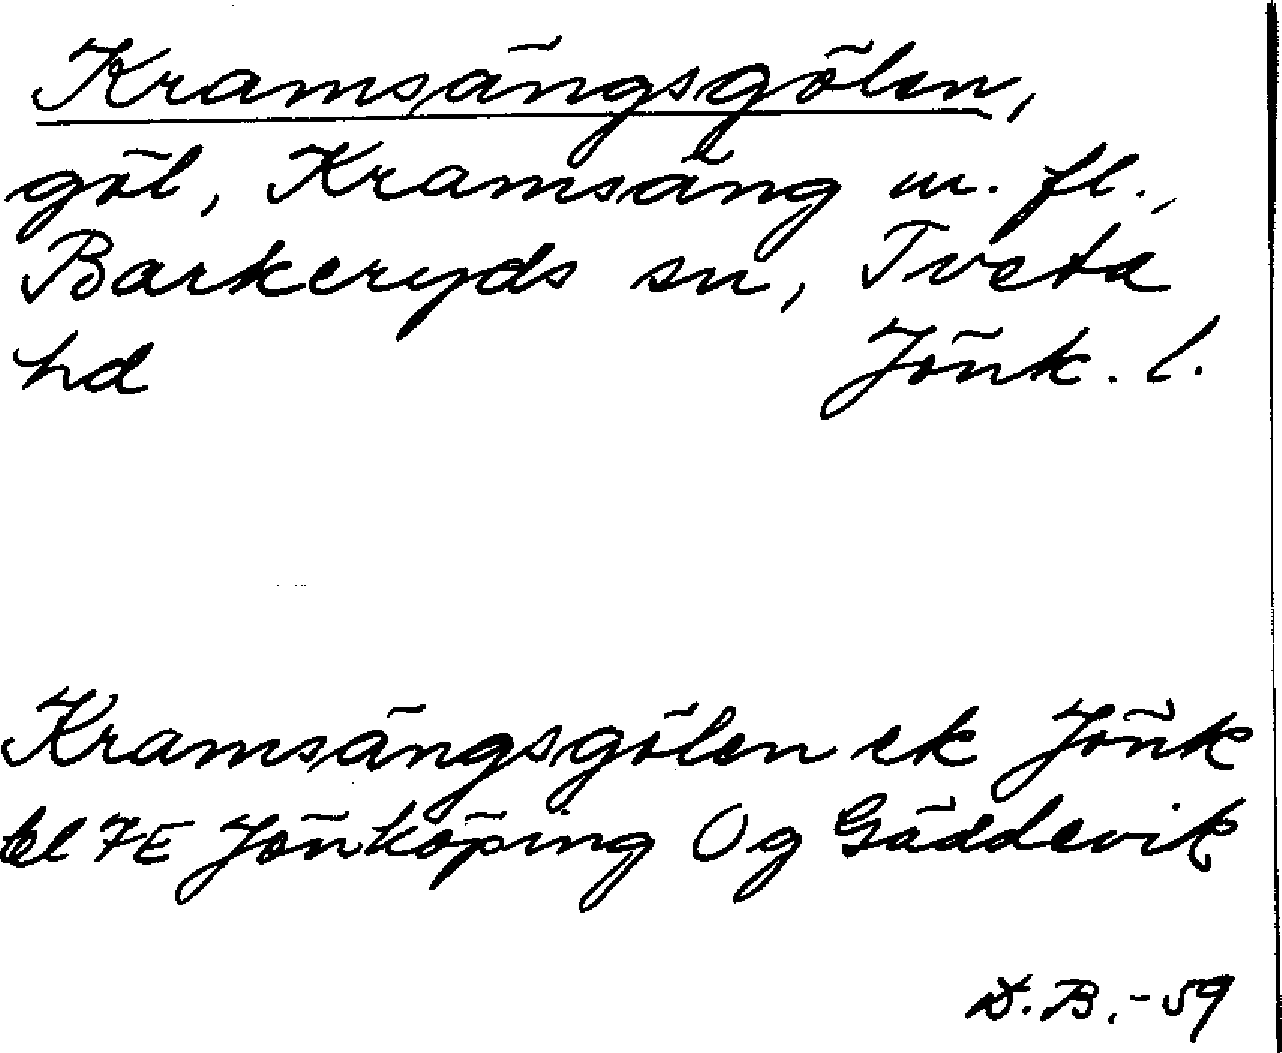 Kramsängsgölen,
göl, Kramsäng m. fl.,
Barkeryds sn, Tveta
hd Jönk. l.
Kramsängsgölen ek Jönk
bl 7E Jönköping Og Gäddevik
D.B.-59